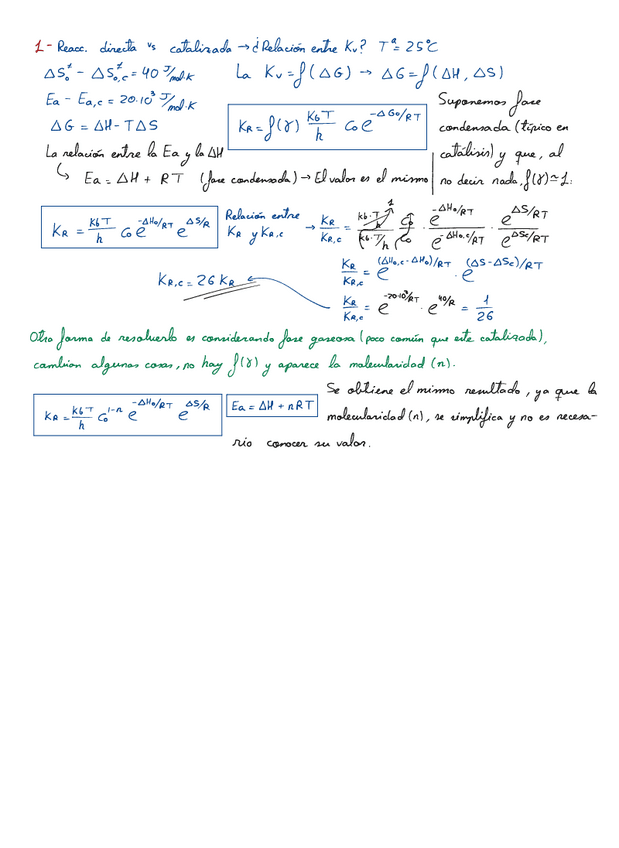 1- Reacc. directa vs catalizada → ¿Relación entre Kv? Tª = 25°C
ΔS₀^≠ - ΔS₀,c^≠ = 40 J/mol·K La Kv = f(ΔG) → ΔG = f(ΔH, ΔS)
Ea - Ea,c = 20·10³ J/mol·K
ΔG = ΔH - TΔS
KR = f(γ) KbT/h C₀ e^(-ΔG₀/RT)
Suponemos fase
condensada (típico en
catálisis) y que, al
no decir nada, f(γ) ≃ 1.
La relación entre la Ea y la ΔH
↳ Ea = ΔH + RT (fase condensada) → El valor es el mismo
KR = KbT/h C₀ e^(-ΔH₀/RT) e^(ΔS/R)
Relación entre
KR y KR,c → KR/KR,c = (Kb·T/h)/(Kb·T/h) 1 · C₀/C₀ · e^(-ΔH₀/RT)/e^(-ΔH₀,c/RT) · e^(ΔS/RT)/e^(ΔSc/RT)
KR/KR,c = e^((ΔH₀,c - ΔH₀)/RT) · e^((ΔS-ΔSc)/RT)
KR,c = 26 KR ← KR/KR,c = e^(-20·10³/RT) · e^(40/R) = 1/26
Otra forma de resolverlo es considerando fase gaseosa (poco común que este catalizada),
cambian algunas cosas, no hay f(γ) y aparece la molecularidad (n).
KR = KbT/h C₀^(1-n) e^(-ΔH₀/RT) e^(ΔS/R)
Ea = ΔH + nRT
Se obtiene el mismo resultado, ya que la
molecularidad (n), se simplifica y no es necesa-
rio conocer su valor.